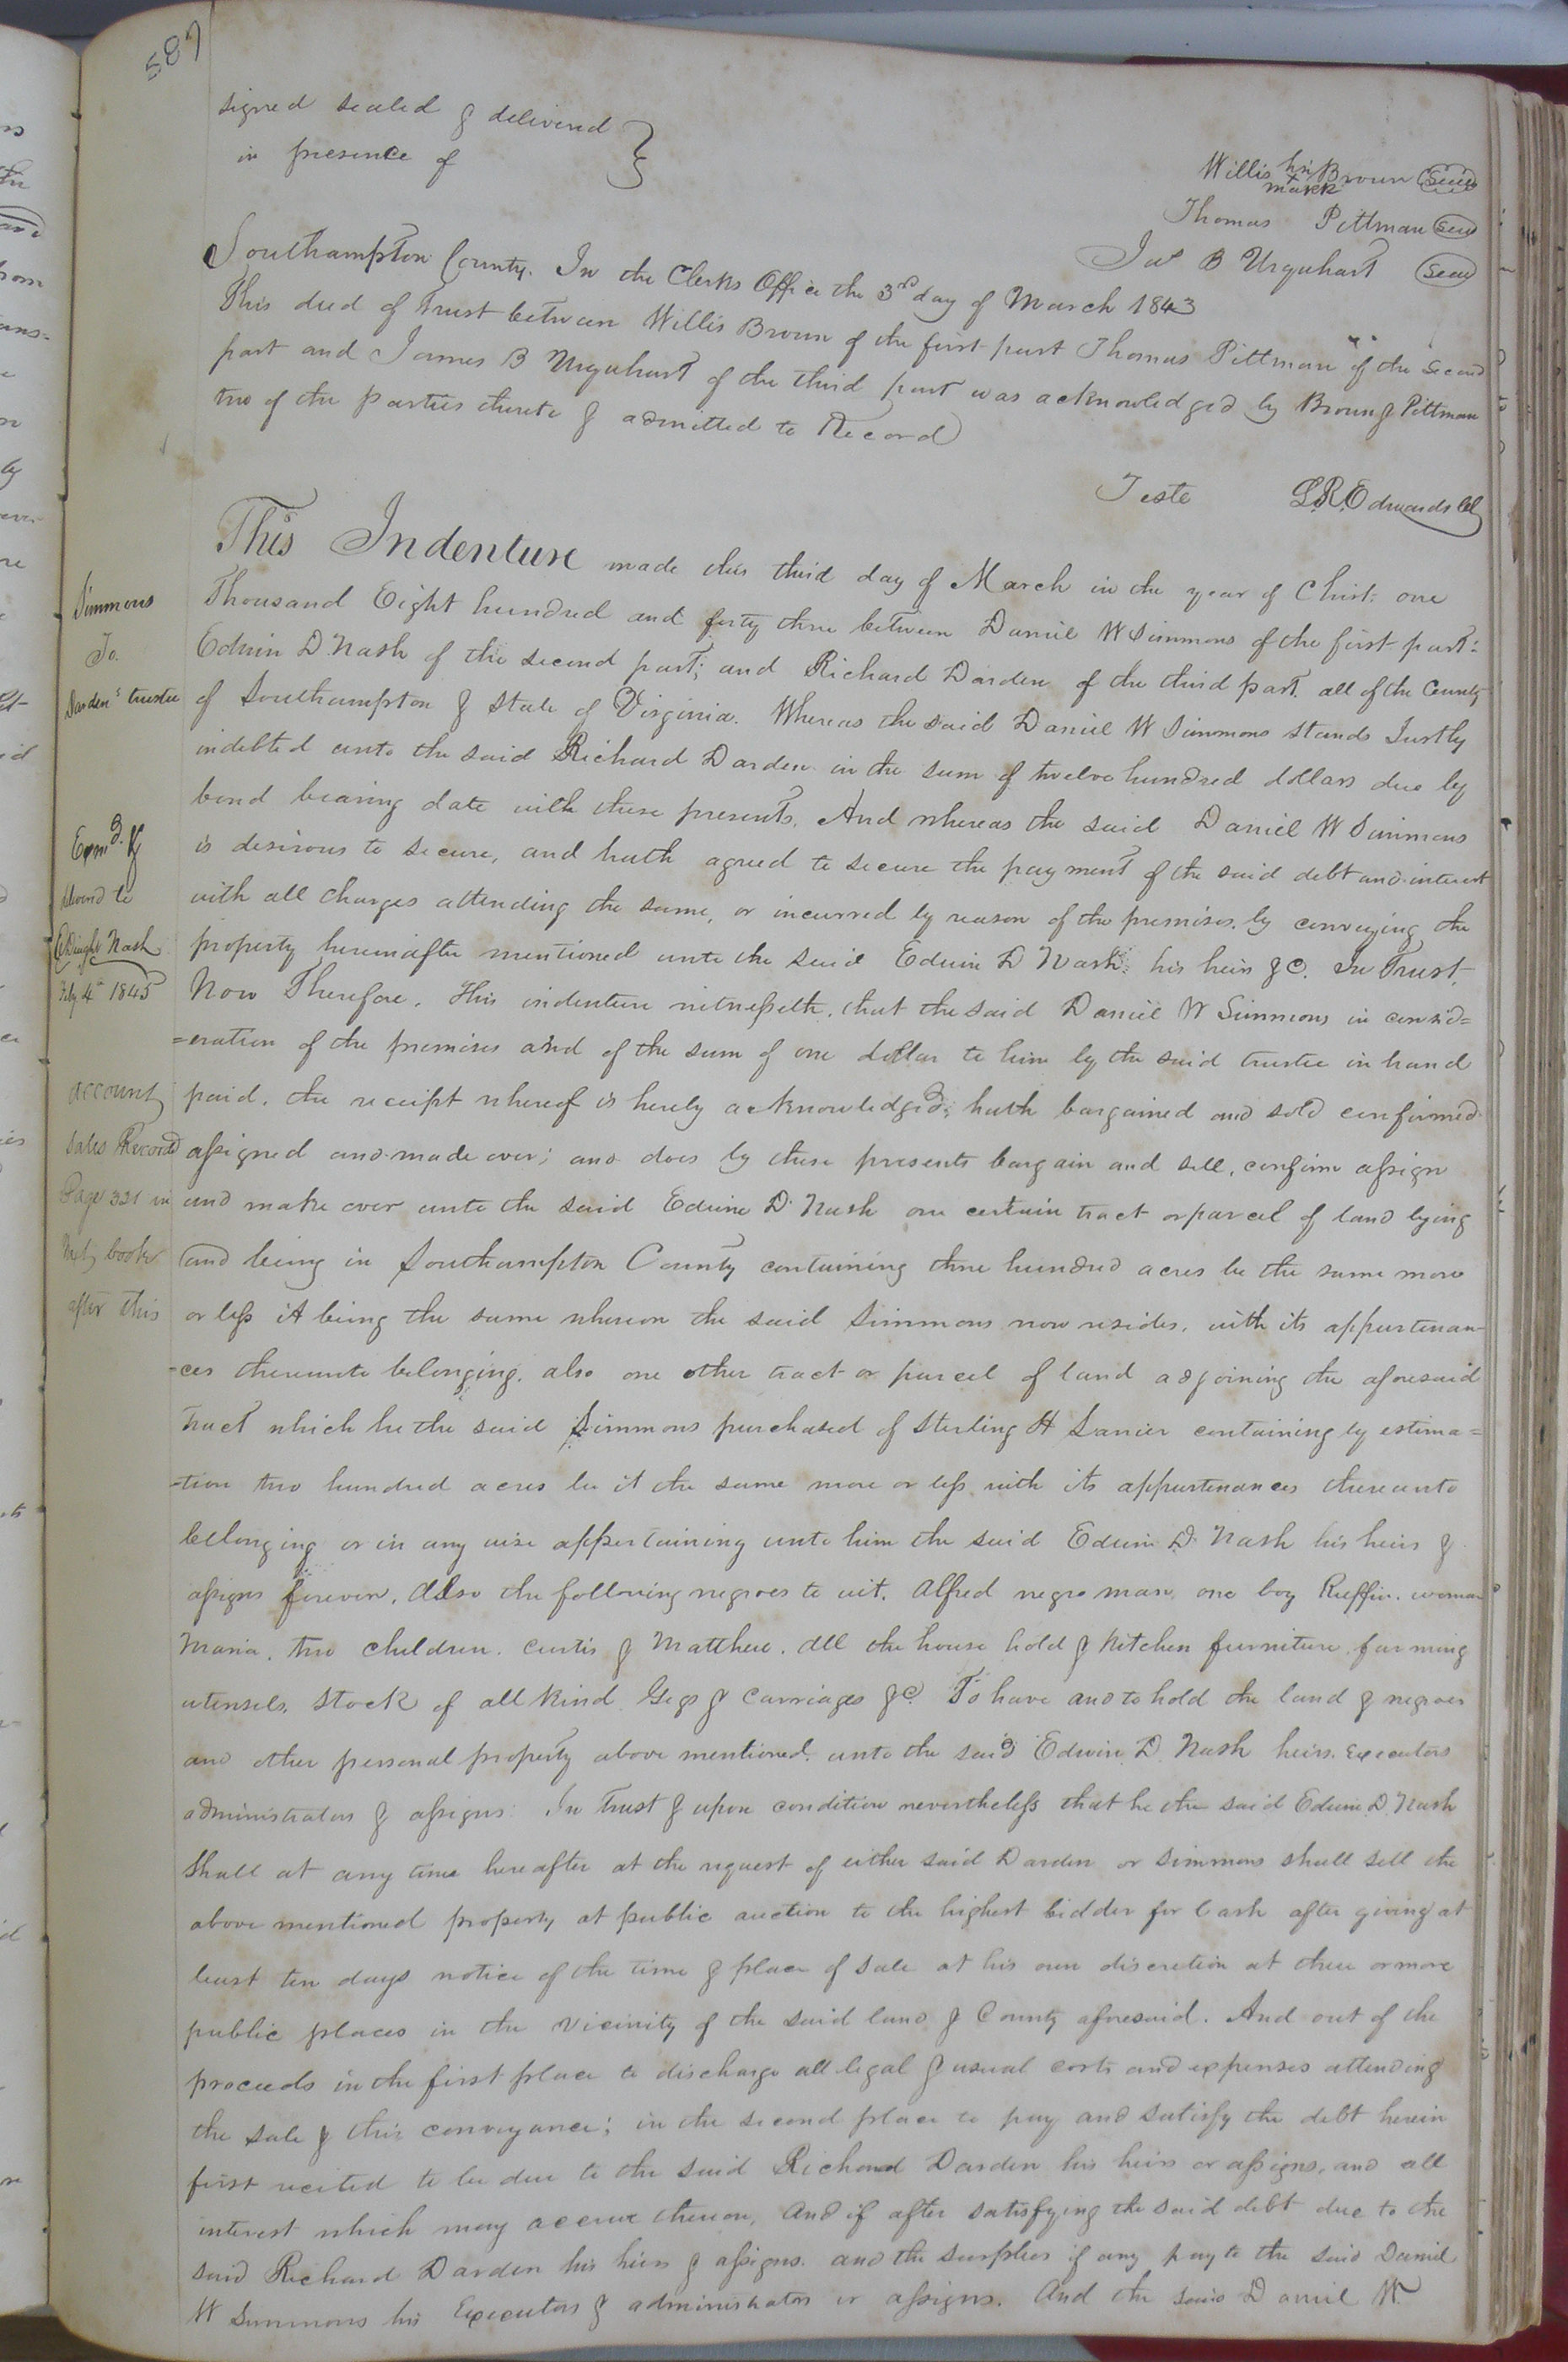 587
signed sealed & delivered
in presence of
Willis his Brown Seal
x
mark
Thomas Pittman Seal
Jas B Urquhart Seal
Southampton County. In the Clerks Office the 3rd day of March 1843
This deed of Trust between Willis Brown of the first part Thomas Pittman of the second
part and James B Urquhart of the third part was acknowledged by Brown & Pittman
two of the parties thereto & admitted to Record
Teste L.R. Edwards Cl
Simmons
To.
Darden's trustee
Exmd. &
delivered to
E Dwight Nash
Feby 4th 1845
account
Sales Record
Page 331 in
next book
after this
This Indenture made this third day of March in the year of Christ: one
Thousand Eight hundred and forty three between Daniel W Simmons of the first part:
Edwin D. Nash of the second part; and Richard Darden of the third part, all of the County
of Southampton & State of Virginia. Whereas the said Daniel W Simmons stands Justly
indebted unto the said Richard Darden in the sum of twelve hundred dollars due by
bond bearing date with these presents. And whereas the said Daniel W Simmons
is desirous to secure, and hath agreed to secure the payment of the said debt and interest
with all charges attending the same, or incurred by reason of the premises. by conveying the
property hereinafter mentioned unto the said Edwin D Nash: his heirs &C. In Trust.
Now Therefore. This indenture witnesseth, that the said Daniel W Simmons in consid=
=eration of the premises and of the sum of one dollar to him by the said trustee in hand
paid. the receipt whereof is hereby acknowledged; hath bargained and sold confirmed
assigned and made over; and does by these presents bargain and sell, confirm assign
and make over unto the said Edwin D. Nash one certain tract or parcel of land lying
and being in Southampton County containing three hundred acres be the same more
or less it being the same whereon the said Simmons now resides, with its appurtenan-
-ces thereunto belonging. also one other tract or parcel of land adjoining the aforesaid
Tract which he the said Simmons purchased of Sterling H Lanier containing by estima=
-tion two hundred acres be it the same more or less with its appurtenances thereunto
bellonging or in any wise appertaining unto him the said Edwin D. Nash his heirs &
assigns forever. Also the following negroes to wit. Alfred negro man, one boy Ruffin. woman
Maria. two children. Curtis & Matthew. All the house hold & Kitchen furniture farming
utensels, Stock of all Kind Gigs & Carriages &C. To have and to hold the land & negroes
and other personal property above mentioned. unto the said Edwin D. Nash heirs. executors
administrators & assigns: In Trust & upon condition nevertheless that he the said Edwin D. Nash
Shall at any time hereafter at the request of either said Darden or Simmons shall sell the
above mentioned property at public auction to the highest bidder for Cash after giving at
least ten days notice of the time & place of sale at his own discretion at three or more
public places in the vicinity of the said land & County aforesaid. And out of the
proceeds in the first place to discharge all legal & usual costs and expenses attending
the sale & this conveyance; in the second place to pay and satisfy the debt herein
first recited to be due to the said Richard Darden his heirs or assigns, and all
interest which may accrue thereon, And if after satisfying the said debt due to the
said Richard Darden his heirs & assigns. and the surplus if any pay to the said Daniel
W Simmons his Executors & administrators or assigns. And the said Daniel W